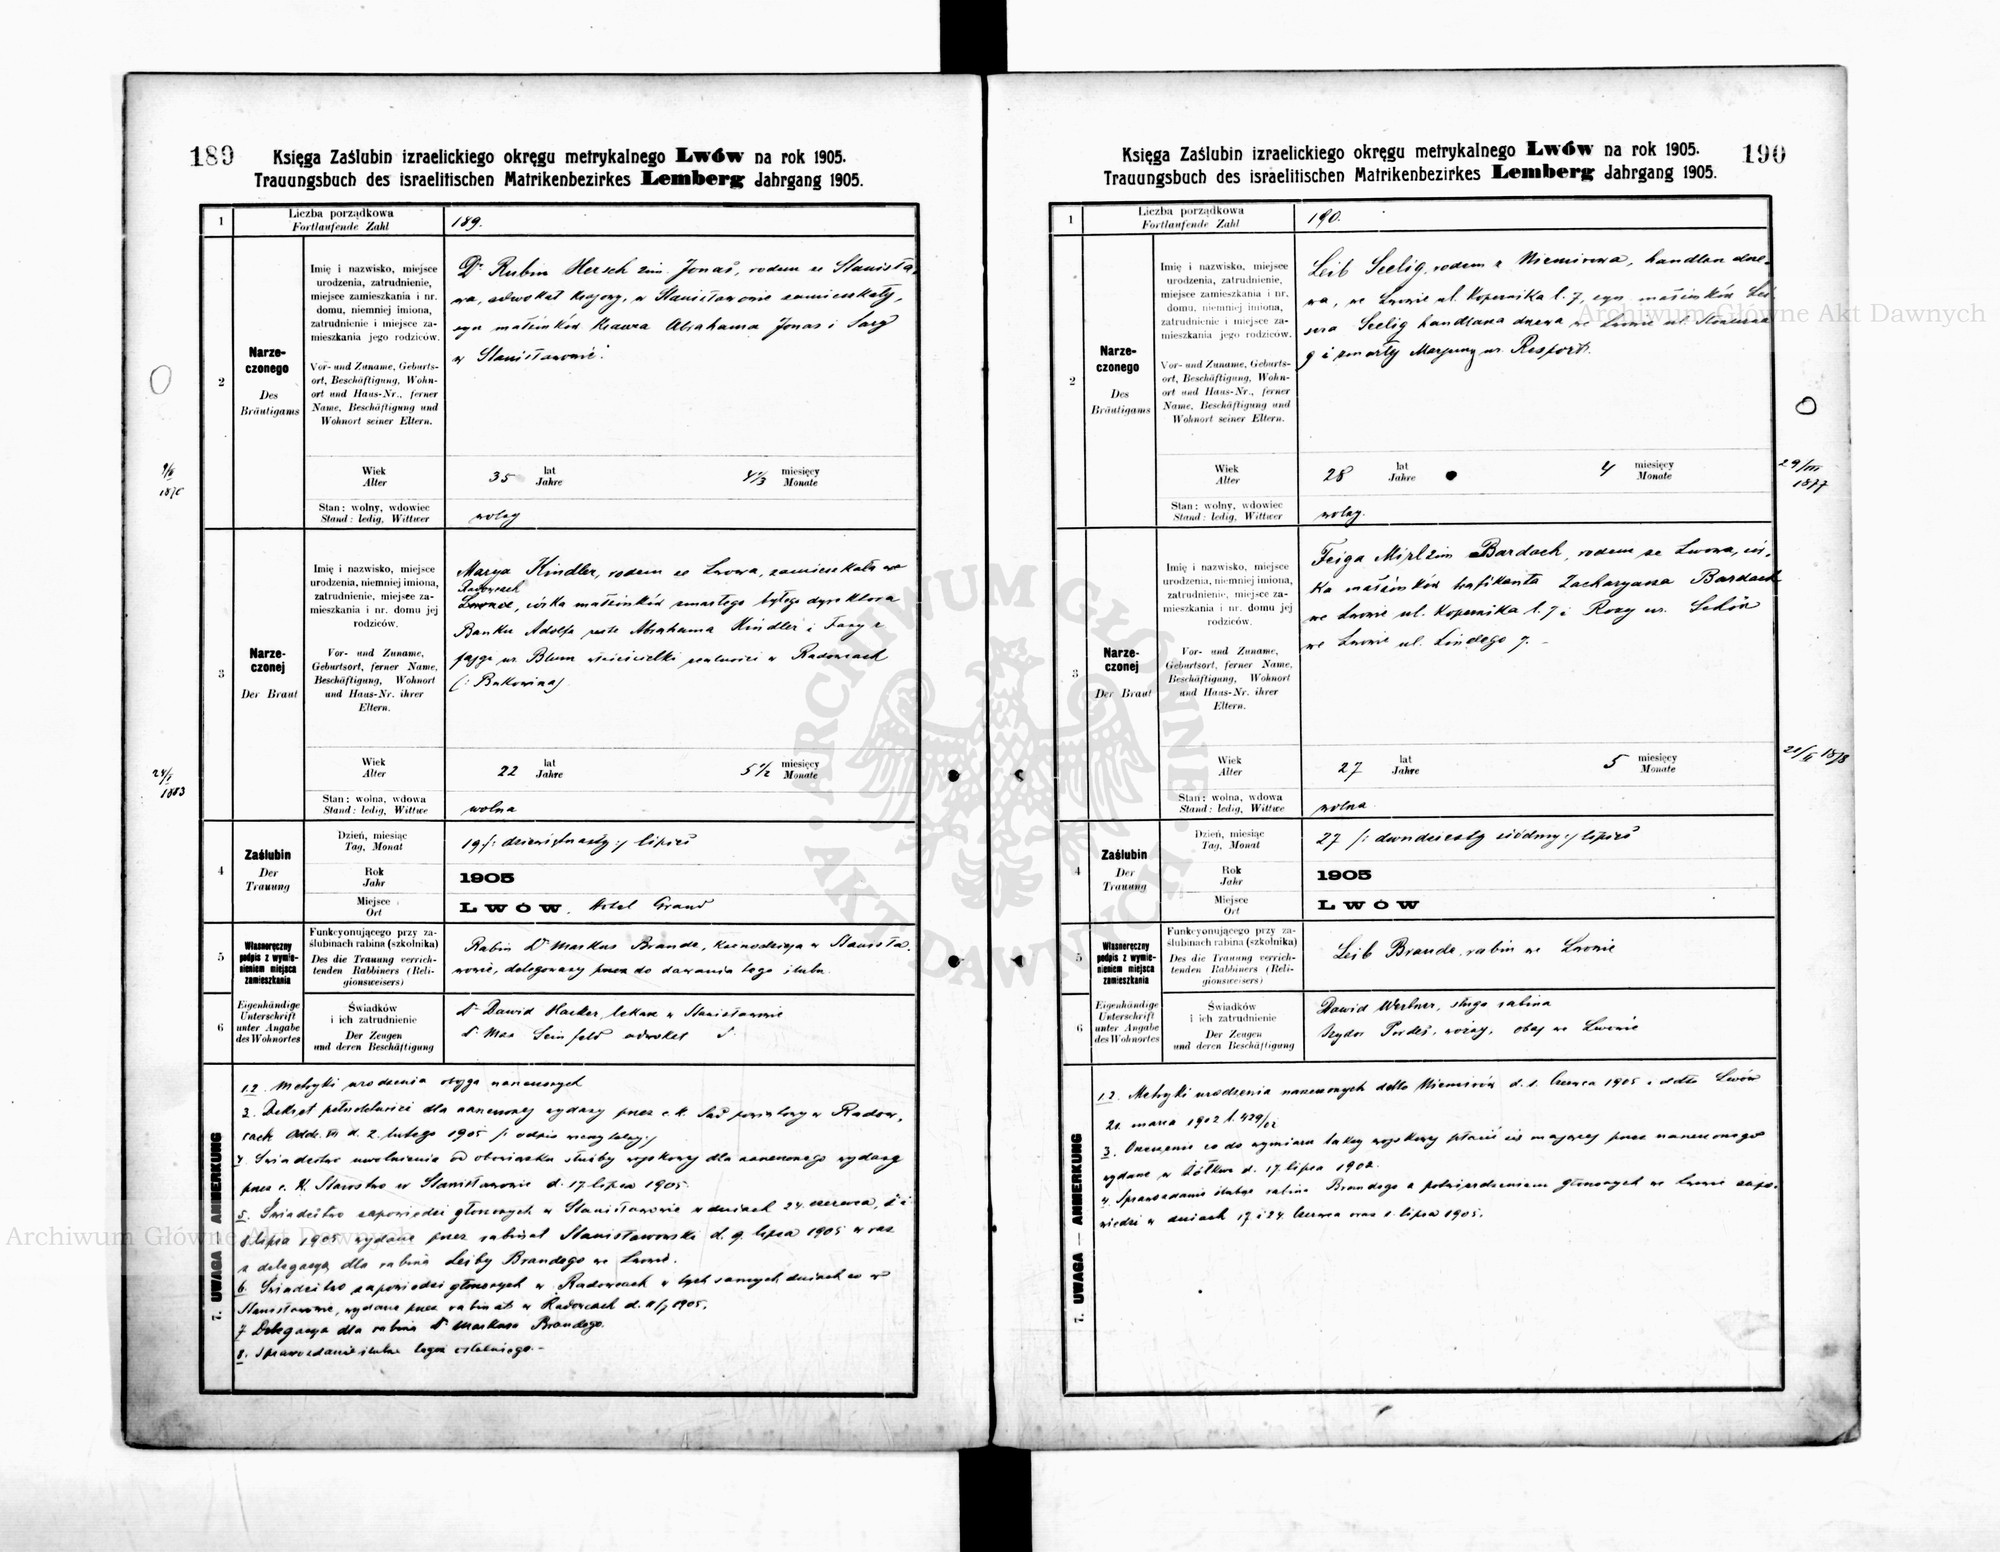 189
Księga Zaślubin izraelickiego okręgu metrykalnego Lwów na rok 1905.
Trauungsbuch des israelitischen Matrikenbezirkes Lemberg Jahrgang 1905.
1
Liczba porządkowa
Fortlaufende Zahl
189.
2
Narze-
czonego
Des
Bräutigams
Imię i nazwisko, miejsce
urodzenia, zatrudnienie,
miejsce zamieszkania i nr.
domu, niemniej imiona,
zatrudnienie i miejsce za-
mieszkania jego rodziców.
Vor- und Zuname, Geburts-
ort, Beschäftigung, Wohn-
ort und Haus-Nr., ferner
Name, Beschäftigung und
Wohnort seiner Eltern.
Dr Rubin Hersch zim. Jonas, rodem ze Stanisła-
wa, adwokat krajowy, w Stanisławowie zamieszkały,
syn małżonków Abrahama Jonas i Sary
w Stanisławowie.
Wiek
Alter
35 lat
Jahre
4 1/3 miesięcy
Monate
Stan: wolny, wdowiec
Stand: ledig, Wittwer
wolny
1870
3
Narze-
czonej
Der Braut
Imię i nazwisko, miejsce
urodzenia, niemniej imiona,
zatrudnienie, miejsce za-
mieszkania i nr. domu jej
rodziców.
Vor- und Zuname,
Geburtsort, ferner Name,
Beschäftigung, Wohnort
und Haus-Nr. ihrer
Eltern.
Marya Kindler, rodem ze Lwowa, zamieszkała w
Radowcach
Lwowie, córka małżonków zmarłego byłego dyrektora
Banku Adolfa recte Abrahama Kindler i Fany z
Fajgi ur. Blum właścicielki realności w Radowcach
(: Bukowina)
Wiek
Alter
22 lat
Jahre
5 1/2 miesięcy
Monate
Stan: wolna, wdowa
Stand: ledig, Wittwe
wolna
1883
4
Zaślubin
Der
Trauung
Dzień, miesiąc
Tag, Monat
19 /: dziewiętnasty :/ lipiec
Rok
Jahr
1905
Miejsce
Ort
LWÓW. Hotel Grand
5
Własnoręczny
podpis z wymie-
nieniem miejsca
zamieszkania
Funkcyonującego przy za-
ślubinach rabina (szkolnika)
Des die Trauung verrich-
tenden Rabbiners (Reli-
gionsweisers)
Rabin Dr Markus Braude, kaznodzieja w Stanisła-
wowie, delegowany do dawania tego ślubu
6
Eigenhändige
Unterschrift
unter Angabe
des Wohnortes
Świadków
i ich zatrudnienie
Der Zeugen
und deren Beschäftigung
Dr Dawid Hacker, lekarz w Stanisławowie
Dr Max Seinfeld adwokat
7. UWAGA — ANMERKUNG
1.2. Metryki urodzenia obojga narzeczonych
3. Dekret pełnoletności dla narzeczonej wydany przez c. k. Sąd powiatowy w Radow-
cach Oddz. VII d. 2. lutego 1905 /: odpis wierzytelny :/
4. Świadectwo uwolnienia od obowiązku służby wojskowej dla narzeczonego wydane
przez c. k. Starostwo w Stanisławowie d. 17 lipca 1905.
5. Świadectwo zapowiedzi głoszonych w Stanisławowie w dniach 24 czerwca, 1 i
8 lipca 1905 wydane przez rabinat Stanisławowski d. 9. lipca 1905 wraz
z delegacyą dla rabina Leiby Braudego we Lwowie.
6. Świadectwo zapowiedzi głoszonych w Radowcach w tych samych dniach co w
Stanisławowie, wydane przez rabinat w Radowcach d. 11/7 1905.
7 Delegacya dla rabina Dr Markusa Braudego.
8. Sprawozdanie ślubne tegoż ostatniego.-
190
Księga Zaślubin izraelickiego okręgu metrykalnego Lwów na rok 1905.
Trauungsbuch des israelitischen Matrikenbezirkes Lemberg Jahrgang 1905.
1
Liczba porządkowa
Fortlaufende Zahl
190.
2
Narze-
czonego
Des
Bräutigams
Imię i nazwisko, miejsce
urodzenia, zatrudnienie,
miejsce zamieszkania i nr.
domu, niemniej imiona,
zatrudnienie i miejsce za-
mieszkania jego rodziców.
Vor- und Zuname, Geburts-
ort, Beschäftigung, Wohn-
ort und Haus-Nr., ferner
Name, Beschäftigung und
Wohnort seiner Eltern.
Leib Seelig, rodem z Niemirowa, handlarz drze-
wa, we Lwowie ul. Kopernika l. 7, syn małżonków
Seelig handlarza drzewa we Lwowie ul.
9 i zmarłej Maryemy ur. Resport.
Wiek
Alter
28 lat
Jahre
4 miesięcy
Monate
Stan: wolny, wdowiec
Stand: ledig, Wittwer
wolny.
29/III
1877
3
Narze-
czonej
Der Braut
Imię i nazwisko, miejsce
urodzenia, niemniej imiona,
zatrudnienie, miejsce za-
mieszkania i nr. domu jej
rodziców.
Vor- und Zuname,
Geburtsort, ferner Name,
Beschäftigung, Wohnort
und Haus-Nr. ihrer
Eltern.
Feiga Mirl zim Bardach, rodem ze Lwowa, cór-
ka małżonków trafikanta Zacharyasza Bardach
we Lwowie ul. Kopernika l. 7 i Rozy ur. Schön
we Lwowie ul. Lindego 7. -
Wiek
Alter
27 lat
Jahre
5 miesięcy
Monate
Stan: wolna, wdowa
Stand: ledig, Wittwe
wolna
1878
4
Zaślubin
Der
Trauung
Dzień, miesiąc
Tag, Monat
27 /: dwudziesty siódmy :/ lipiec
Rok
Jahr
1905
Miejsce
Ort
LWÓW
5
Własnoręczny
podpis z wymie-
nieniem miejsca
zamieszkania
Funkcyonującego przy za-
ślubinach rabina (szkolnika)
Des die Trauung verrich-
tenden Rabbiners (Reli-
gionsweisers)
Leib Braude, rabin we Lwowie
6
Eigenhändige
Unterschrift
unter Angabe
des Wohnortes
Świadków
i ich zatrudnienie
Der Zeugen
und deren Beschäftigung
Dawid Werber, sługa rabina
Izydor Pordes, woźny, obaj we Lwowie
7. UWAGA — ANMERKUNG
1.2. Metryki urodzenia narzeczonych ddto Niemirów d. 1. czerwca 1905 i ddto Lwów
21 marca 1902 l. 429/02
3. Orzeczenie co do wymiaru taksy wojskowej płacić się mającej przez narzeczonego
wydane w Żółkwi d. 17. lipca 1902.
4. Sprawozdanie ślubne rabina Braudego z potwierdzeniem głoszonych we Lwowie zapo-
wiedzi w dniach 17 i 24. Czerwca oraz 1. lipca 1905.
ARCHIWUM GŁÓWNE AKT DAWNYCH
Archiwum Główne Akt Dawnych
Archiwum Główne Akt Dawnych